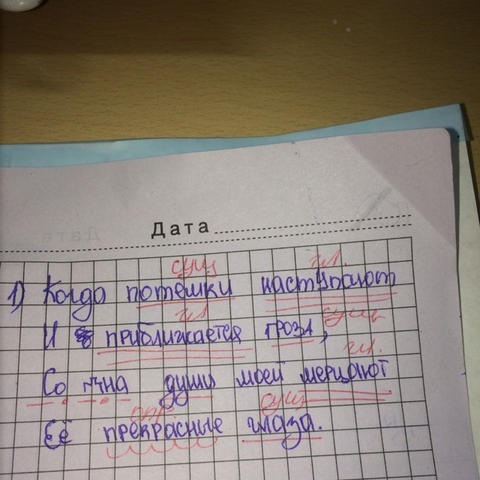 Дата
сущ гл.
1) Когда потемки наступают
гл
И приближается гроза, сущ
гл.
Со дна души моей мерцают
опр сущ
Её прекрасные глаза.